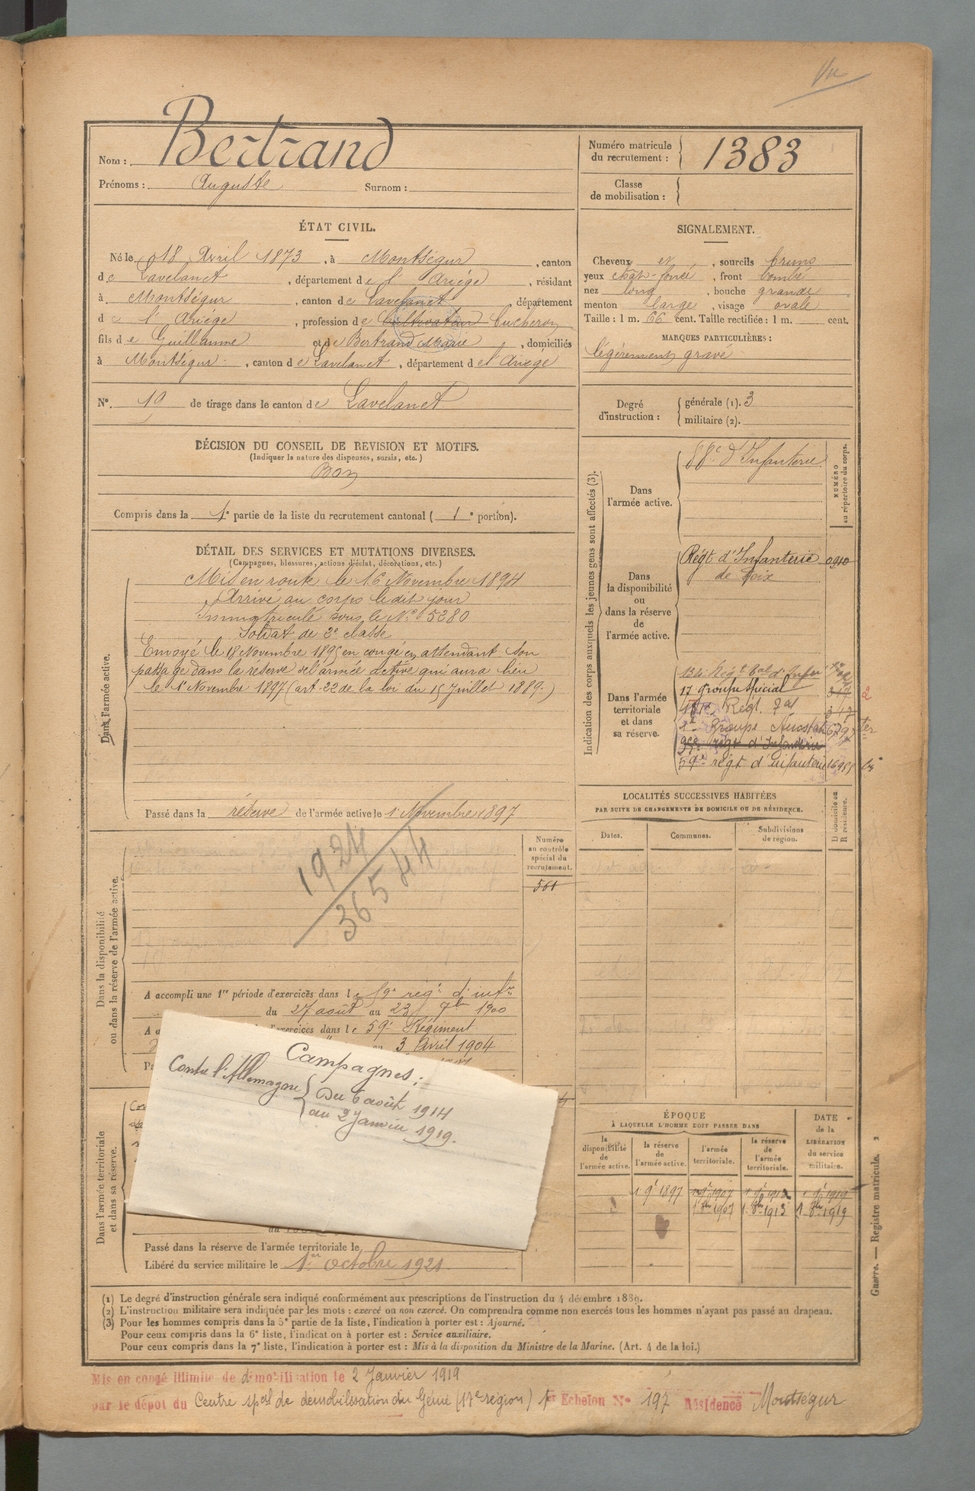 Vu
Nom : Bertrand
Prénoms : Auguste Surnom :
Numéro matricule du recrutement : 1383
Classe de mobilisation :
ÉTAT CIVIL.
Né le 18 Avril 1873, à Montségur, canton
de Lavelanet, département de l'Ariège, résidant
à Montségur, canton de Lavelanet, département
de l'Ariège, profession de Cultivateur Bucheron
fils de Guillaume et de Bertrand Marie, domiciliés
à Montségur, canton de Lavelanet, département de l'Ariège
N° 19 de tirage dans le canton de Lavelanet
DÉCISION DU CONSEIL DE REVISION ET MOTIFS.
(Indiquer la nature des dispenses, sursis, etc.)
Bon
Compris dans la 1e partie de la liste du recrutement cantonal ( 1e portion).
SIGNALEMENT.
Cheveux et, sourcils bruns
yeux chât-foncé, front bombé
nez long, bouche grande
menton large, visage ovale
Taille : 1 m. 66 cent. Taille rectifiée : 1 m. cent.
MARQUES PARTICULIÈRES :
légèrement gravé
Degré d'instruction : générale (1). 3
militaire (2).
DÉTAIL DES SERVICES ET MUTATIONS DIVERSES.
(Campagnes, blessures, actions d'éclat, décorations, etc.)
Dans l'armée active.
Mis en route le 16 Novembre 1894
Arrivé au corps le dit jour
Immatriculé sous le N° 5280
Soldat de 2e classe
Envoyé le 18 Novembre 1895 en congé en attendant son
passage dans la réserve de l'armée active qui aura lieu
le 1er Novembre 1897 (art 22 de la loi du 15 Juillet 1889.)
Passé dans la réserve de l'armée active le 1 Novembre 1897
Indication des corps auxquels les jeunes gens sont affectés (3).
NUMÉRO au répertoire du corps.
Dans l'armée active.
d'Infanterie
Dans la disponibilité ou dans la réserve de l'armée active.
Régt d'Infanterie
de Foix
Dans l'armée territoriale et dans sa réserve.
17 Groupe Spécial
Groupe
59e régt d'Infanterie
LOCALITÉS SUCCESSIVES HABITÉES
PAR SUITE DE CHANGEMENTS DE DOMICILE OU DE RÉSIDENCE.
Dates. Communes. Subdivisions de région. D domicile ou R résidence.
Dans la disponibilité ou dans la réserve de l'armée active.
Numéro au contrôle spécial du recrutement.
561
1924
36544
A accompli une 1re période d'exercices dans le 59e regt d'infie
du 27 août au 23 7bre 1900
d'exercices dans le 59e Régiment
3 Avril 1904
Campagnes :
Contre l'Allemagne du 6 août 1914
au 2 Janvier 1919.
Dans l'armée territoriale et dans sa réserve.
Passé dans la réserve de l'armée territoriale le
Libéré du service militaire le 1er octobre 1921
ÉPOQUE
À LAQUELLE L'HOMME DOIT PASSER DANS
DATE de la LIBÉRATION du service militaire.
la disponibilité de l'armée active. la réserve de l'armée active. l'armée territoriale. la réserve de l'armée territoriale.
1 9bre 1897
Guerre. — Registre matricule. 2
(1) Le degré d'instruction générale sera indiqué conformément aux prescriptions de l'instruction du 4 décembre 1889.
(2) L'instruction militaire sera indiquée par les mots : exercé ou non exercé. On comprendra comme non exercés tous les hommes n'ayant pas passé au drapeau.
(3) Pour les hommes compris dans la 5e partie de la liste, l'indication à porter est : Ajourné.
Pour ceux compris dans la 6e liste, l'indication à porter est : Service auxiliaire.
Pour ceux compris dans la 7e liste, l'indication à porter est : Mis à la disposition du Ministre de la Marine. (Art. 4 de la loi.)
Mis en congé illimité de démobilisation le 2 Janvier 1919
par le dépôt du Centre spal de démobilisation du Génie (17e région) 1er Echelon N° 197 Résidence Montségur